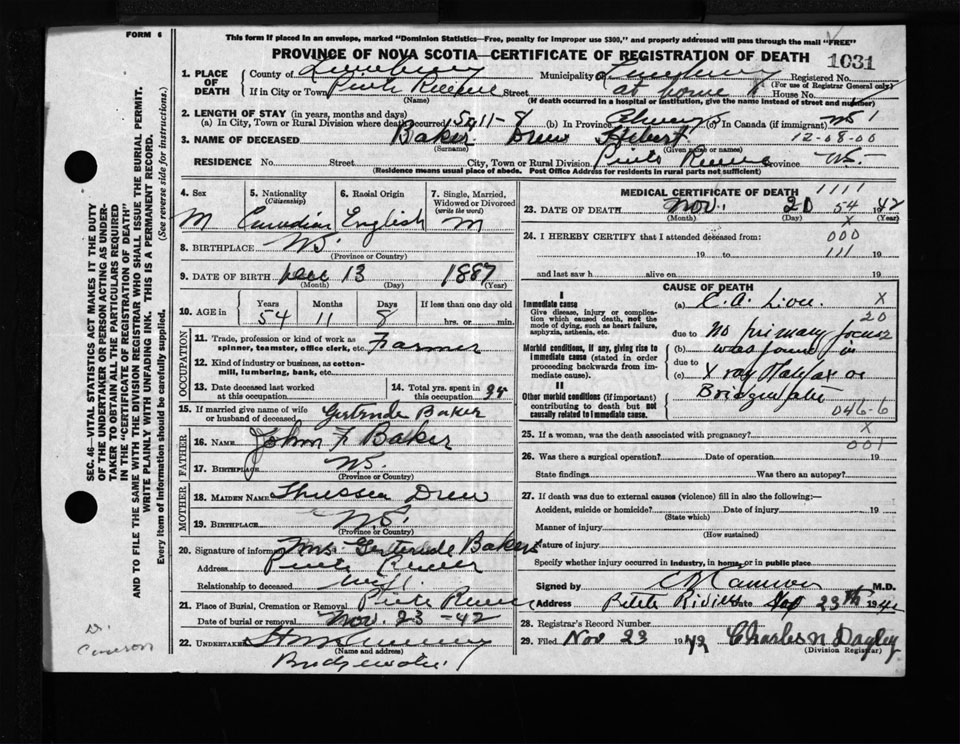 FORM 6
This form if placed in an envelope, marked "Dominion Statistics—Free, penalty for improper use $300," and properly addressed will pass through the mail "FREE"
PROVINCE OF NOVA SCOTIA—CERTIFICATE OF REGISTRATION OF DEATH
1031
1. PLACE OF DEATH
County of Lunenburg Municipality of Registered No.
(For use of Registrar General only)
If in City or Town Street at home House No.
(Name) (If death occurred in a hospital or institution, give the name instead of street and number)
2. LENGTH OF STAY (in years, months and days)
(a) In City, Town or Rural Division where death occurred (b) In Province (c) In Canada (if immigrant)
12-08-00
3. NAME OF DECEASED Baker Drew
(Surname) (Given name or names)
RESIDENCE No. Street City, Town or Rural Division Province N.S.
(Residence means usual place of abode. Post Office Address for residents in rural parts not sufficient)
4. Sex M
5. Nationality (Citizenship) Canadian
6. Racial Origin English
7. Single, Married, Widowed or Divorced (write the word) M
8. BIRTHPLACE N.S.
(Province or Country)
9. DATE OF BIRTH Dec 13 1887
(Month) (Day) (Year)
10. AGE in Years Months Days If less than one day old
54 11 8 hrs. or min.
OCCUPATION
11. Trade, profession or kind of work as spinner, teamster, office clerk, etc. Farmer
12. Kind of industry or business, as cotton-mill, lumbering, bank, etc.
13. Date deceased last worked at this occupation
14. Total yrs. spent in this occupation
15. If married give name of wife or husband of deceased Gertrude Baker
FATHER
16. NAME John F Baker
17. BIRTHPLACE N.S.
(Province or Country)
MOTHER
18. MAIDEN NAME Drew
19. BIRTHPLACE N.S.
(Province or Country)
20. Signature of informant Mrs. Gertrude Baker
Address
Relationship to deceased wife
21. Place of Burial, Cremation or Removal
Date of burial or removal Nov. 23 -42
22. UNDERTAKER
(Name and address)
Bridgewater
MEDICAL CERTIFICATE OF DEATH 1111
23. DATE OF DEATH Nov. 20 54 1942
(Month) (Day) (Year)
x
24. I HEREBY CERTIFY that I attended deceased from: 000
19 to 111 19
and last saw h alive on 19
CAUSE OF DEATH
I
Immediate cause
Give disease, injury or complication which caused death, not the mode of dying, such as heart failure, asphyxia, asthenia, etc.
(a) C.A. Liver X
20
due to No primary focus
Morbid conditions, if any, giving rise to immediate cause (stated in order proceeding backwards from immediate cause).
(b) was found in
due to
(c) X ray Halifax or
II
Other morbid conditions (if important) contributing to death but not causally related to immediate cause.
Bridgewater
046-6
25. If a woman, was the death associated with pregnancy? X
001
26. Was there a surgical operation? Date of operation 19
State findings Was there an autopsy?
27. If death was due to external causes (violence) fill in also the following:—
Accident, suicide or homicide? Date of injury 19
(State which)
Manner of injury
(How sustained)
Nature of injury
Specify whether injury occurred in industry, in home, or in public place
Signed by M.D.
Address Date 23th
28. Registrar's Record Number
29. Filed Nov 23 1942 Charles N Dagley
(Division Registrar)
SEC. 46—VITAL STATISTICS ACT MAKES IT THE DUTY
OF THE UNDERTAKER OR PERSON ACTING AS UNDER-
TAKER TO OBTAIN ALL THE PARTICULARS REQUIRED
IN THE "CERTIFICATE OF REGISTRATION OF DEATH"
AND TO FILE THE SAME WITH THE DIVISION REGISTRAR WHO SHALL ISSUE THE BURIAL PERMIT.
WRITE PLAINLY WITH UNFADING INK. THIS IS A PERMANENT RECORD.
Every item of Information should be carefully supplied. (See reverse side for instructions.)
Dr. Cameron